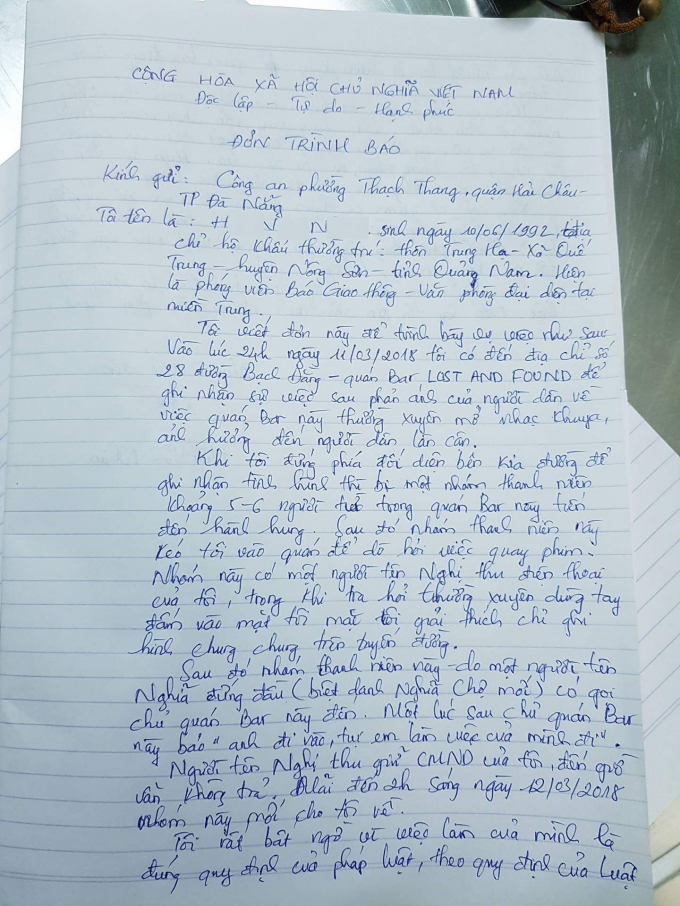 CỘNG HÒA XÃ HỘI CHỦ NGHĨA VIỆT NAM
Độc lập - Tự do - Hạnh phúc
ĐƠN TRÌNH BÁO
Kính gửi: Công an phường Thạch Thang, quận Hải Châu -
TP Đà Nẵng
Tôi tên là: H V N . sinh ngày 10/06/1992, địa
chỉ hộ khẩu thường trú: thôn Trung Hạ - Xã Quế
Trung - huyện Nông Sơn - tỉnh Quảng Nam. Hiện
là phóng viên Báo Giao thông - Văn phòng đại diện tại
miền Trung.
Tôi viết đơn này để trình bày sự việc như sau:
Vào lúc 24h ngày 11/03/2018 tôi có đến địa chỉ số
28 đường Bạch Đằng - quán Bar LOST AND FOUND để
ghi nhận sự việc sau phản ánh của người dân về
việc quán Bar này thường xuyên mở nhạc khuya,
ảnh hưởng đến người dân lân cận.
Khi tôi đứng phía đối diện bên kia đường để
ghi nhận tình hình thì bị một nhóm thanh niên
khoảng 5-6 người từ trong quán Bar này tiến
đến hành hung. Sau đó nhóm thanh niên này
kéo tôi vào quán để dò hỏi việc quay phim.
Nhóm này có một người tên Nghị thu điện thoại
của tôi, trong khi tra hỏi thường xuyên dùng tay
đấm vào mặt tôi mặc tôi giải thích chỉ ghi
hình chung chung trên tuyến đường.
Sau đó nhóm thanh niên này - do một người tên
Nghĩa đứng đầu (biệt danh Nghĩa Chợ mới) có gọi
chủ quán Bar này đến. Một lúc sau chủ quán Bar
này bảo "anh đi vào, tụi em làm việc của mình đi".
Người tên Nghị thu giữ CMND của tôi, đến giờ
vẫn không trả. Mãi đến 2h sáng ngày 12/03/2018
nhóm này mới cho tôi về.
Tôi rất bất ngờ vì việc làm của mình là
đúng quy định của pháp luật, theo quy định của Luật